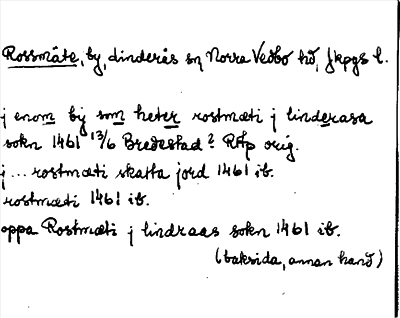 Rossmåte, by, Linderås sn Norra Vedbo hd, Jkpgs l.
j enom bij som heter rostmæti j linderasa
sokn 1461 13/6 Bredestad? RAp orig.
j ... rostmæti skatta jord 1461 ib.
rostmæti 1461 ib.
oppa Rostmæti j lindraas sokn 1461 ib.
(baksida, annan hand)